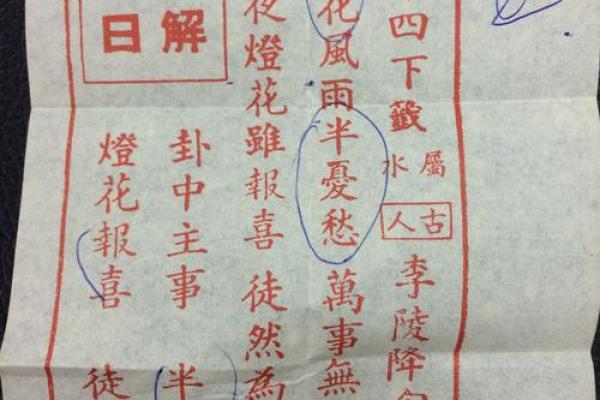 四下籤 屬水 古人 李陵降
花風雨半憂愁 萬事無
夜燈花雖報喜 徒然為
解曰
卦中主事 半
燈花報喜 徒